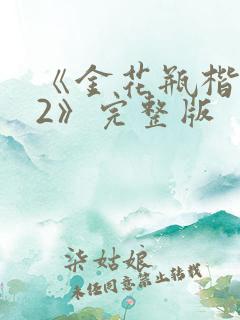 《金花瓶楷
2》完整版
柒姑娘
未经同意禁止转载